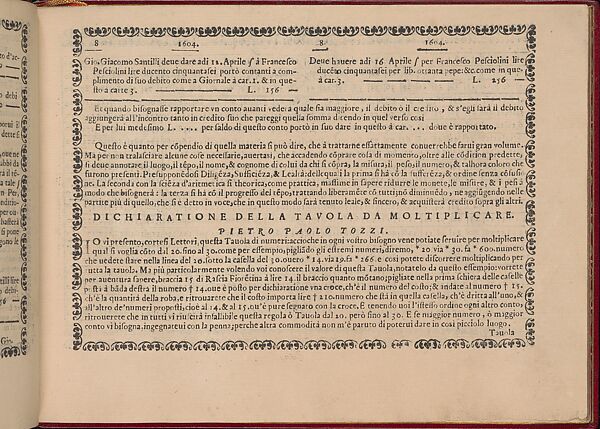 8 1604. 8 1604.
Gio. Giacomo Santilli deue dare adi 12. Aprile ʃ à Francesco
Pesciolini lire ducento cinquantasei portò contanti a com-
plimento di suo debito come a Giornale à car. 1. & in que-
sto a carte 3. L. 256
Deue hauere adi 16 Aprile ʃ per Francesco Pesciolini lire
ducēto cinquantasei per lib. ottanta pepe: &c. come in que-
à car. 3. L. 256
Et quando bisognasse rapportare vn conto auanti vedera quale sia maggiore, il debito ò il credito, & s'egli sarà il debito
aggiungerà all'incontro tanto in credito suo che pareggi quella somma dicendo in quel verso così
E per lui medesimo L. .... per saldo di questo conto portò in suo dare in questo à car. ... doue è rapportato.
Questo è quanto per cōpendio di quella materia si può dire, che à trattarne essattamente conuerrebbe farui gran volume.
Ma per non tralasciare alcune cose necessarie, auertasi, che accadendo cōprare cosa di momento, oltre alle cōditioni predette,
si deue annotare il luogo, il tēpo, il nome, & cognome di colui da chi si cōpra, la misura, il peso, il numero, & talhora coloro che
furono presenti. Presupponēdosi Diligēza, Sufficiēza, & Lealtà: delle qual la prima si hà cō la sufficiēza, & ordine senza cōfusio-
ne. La seconda con la sciēza d'arimetica sì theorica, come prattica, massime in saper ridurre le monete, le misure, & i pesi à
modo che bisognerà: la terza si hà cō il progresso del tēpo, trattando liberamēte cō tutti, nō diminuēdo, nè aggiungēdo nelle
partite più di quello, che si è detto in voce, che in questo modo sarà tenuto leale, & sincero, & acquisterà credito sopra gli altri.
DICHIARATIONE DELLA TAVOLA DA MOLTIPLICARE.
PIETRO PAOLO TOZZI.
IO vi presento, cortesi Lettori, questa Tauola di numeri: acciochè in ogni vostro bisogno vene potiate seruire per moltiplicare
qual si voglia cosa dal 20. sino al 30. come per essempio, pigliādo gli estremi numeri, diremo, * 20 via * 30. fa * 600. numero
che uedete stare nella linea del 20. sotto la casella del 30. ouero * 14. via 19. fa * 266. e così potete discorrere moltiplicando per
tutta la tauola. Ma più particolarmente volendo voi conoscere il valore di questa Tauola, notatelo da questo essempio: vorrete
per auentura sapere, braccia 15 di Rascia Fiorētina à lire 14. il braccio quanto mōtano; pigliate nella prima schiera delle caselle
posta à bāda destra il numero † 14. oue è posto per dichiaratione vna croce, ch'è il numero del costo; & andate al numero † 15.
ch'è la quantità della roba, e ritrouarete che il costo importa lire † 210. numero che stà in quella casella, ch'è dritta all'uno, &
all'altro de'numeri propositi, cioè al 14. & al 15. ou'è pure segnato con la croce. E tenendo uoi l'istesso ordine ogni altro conto
ritrouerete che in tutti vi riuscirà infallibile questa regola ò Tauola dal 20. però sino al 30. E se maggior numero, ò maggior
conto vi bisogna, ingegnateui con la penna; perche altra commodità non m'è paruto di poterui dare in così picciolo luogo.
Tauola